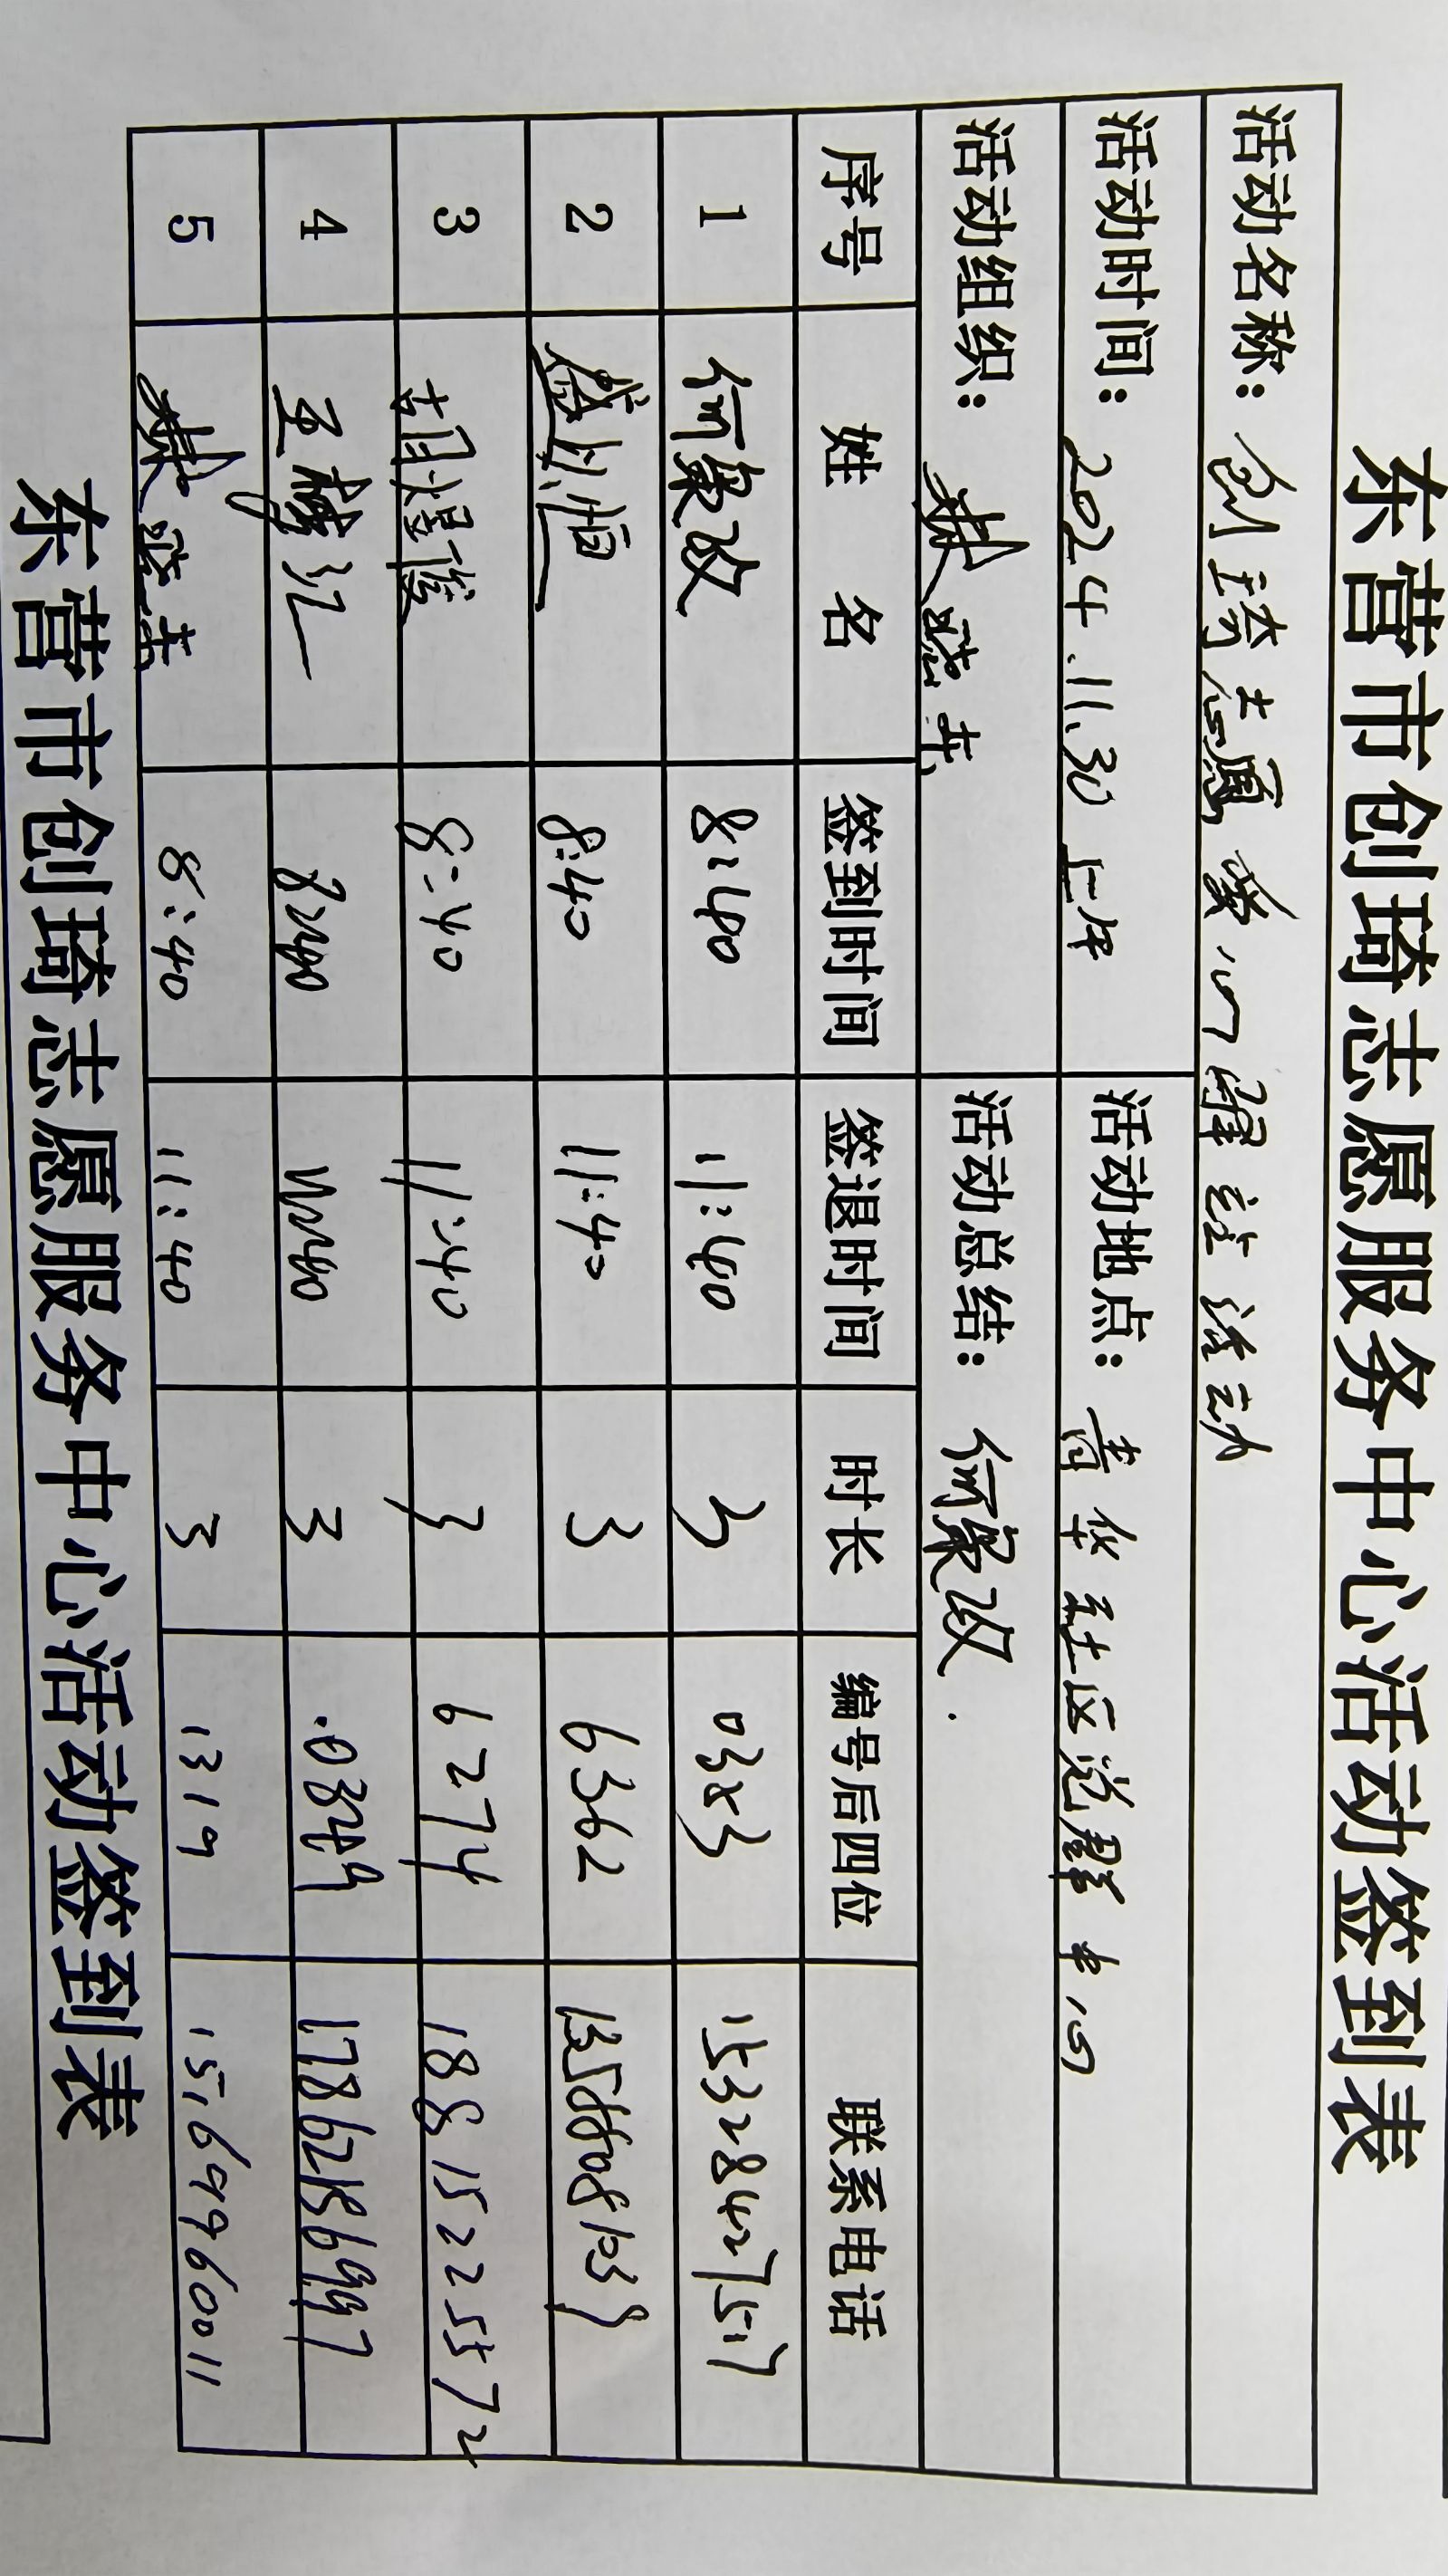 东营市创琦志愿服务中心活动签到表
活动名称：创琦志愿 爱心 驿站 活动
活动时间：2024.11.30 上午 活动地点：青华社区党群中心
活动组织： 活动总结：何象改
序号 姓 名 签到时间 签退时间 时长 编号后四位 联系电话
1 何象改 8:40 11:40 3 15328427517
2 盛川恒 8:40 11:40 3 6362
3 胡煜俊 8:40 11:40 3 6274 18815225572
4 王 8:40 11:40 3
5 8:40 11:40 3 1319 15169960011
东营市创琦志愿服务中心活动签到表